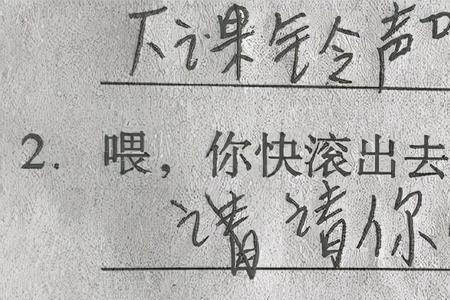 下课铃声
2. 喂，你快滚出去
请请你